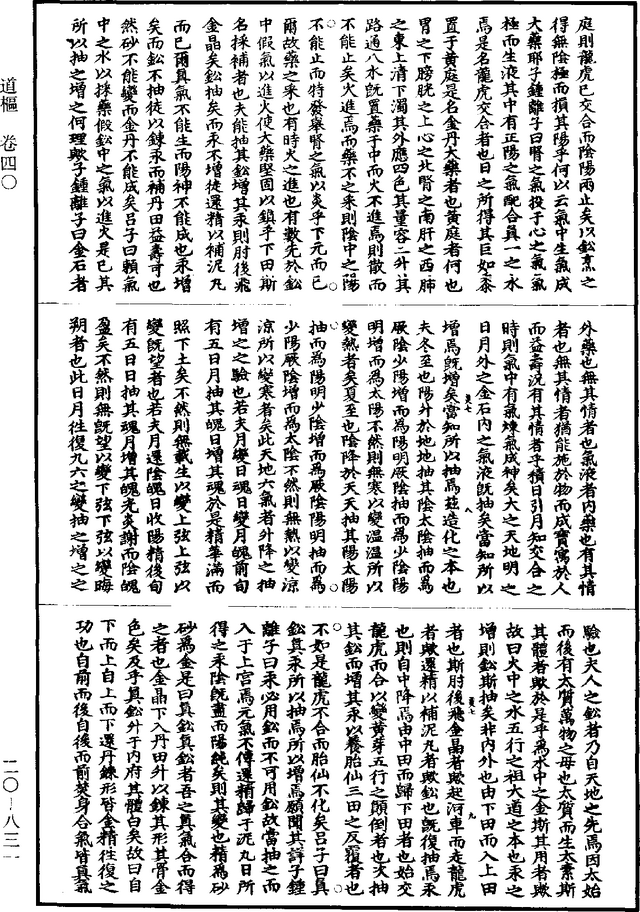 庭則龍虎已交合而陰陽兩止矣以鉛烹之
得無陰極而損其陽乎何以云氣中生氣成
大藥耶子鍾離子曰腎之氣投于心之氣氣
極而生液其中有正陽之氣配合真一之水
焉是名龍虎交合者也日之所得其巨如黍
置于黄庭是名金丹大藥者也黄庭者何也
胃之下膀胱之上心之北腎之南肝之西肺
之東上清下濁其外應四色其量容二升其
路通八水既置藥于中而火不進焉則散而
不能止矣火進焉而藥不之采則陰中之陽
不能止而特發舉腎之氣以炎乎下元而已
爾故藥之采也有時火之進也有數先於鉛
中假氣以進火使大藥堅固以鎮乎下田斯
名採補者也夫能抽其鉛增其汞則肘後飛
金晶矣鉛抽矣而汞不增徒還精以補泥丸
而已爾真氣不能生而陽神不能成也汞增
矣而鉛不抽徒以鍊汞而補丹田益壽可也
然砂不能變而金丹不能成矣吕子曰賴氣
中之水以採藥假鉛中之氣以進火是已其
所以抽之增之何理歟子鍾離子曰金石者
外藥也無其情者也氣液者内藥也有其情
者也無其情者猶能施於物而成寶寓於人
而益壽況有其情者乎積日引月知交合之
時則氣中有氣煉氣成神矣大之天地明之
日月外之金石内之氣液既抽矣當知所以
增焉既增矣當知所以抽焉茲造化之本也
夫冬至也陽升於地地抽其陰太陰抽而爲
厥陰少陽增而爲陽明厥陰抽而爲少陰陽
明增而爲太陽不然則無寒以變温温所以
變熱者矣夏至也陰降於天天抽其陽太陽
抽而爲陽明少陰增而爲厥陰陽明抽而爲
少陽厥陰增而爲太陰不然則無熱以變涼
涼所以變寒者矣此天地六氣者升降之抽
增之之驗也若夫月變日魂日變月魄前旬
有五日月抽其魄日增其魂於是精華滿而
照下土矣不然則無載生以變上弦上弦以
變既望者也若夫月還陰魄日收陽精後旬
有五日日抽其魂月增其魄光炎謝而陰魄
盈矣不然則無既望以變下弦下弦以變晦
朔者也此日月往復九六之變抽之增之之
驗也夫人之鉛者乃自天地之先焉因太始
而後有太質萬物之母也太質而生太素斯
其體者歟於是乎爲水中之金斯其用者歟
故曰火中之水五行之祖大道之本也汞之
增則鉛斯抽矣非内外也由下田而入上田
者也斯肘後飛金晶者歟起河車而走龍虎
者歟還精以補泥丸者歟鉛也既後抽焉汞
也則自中降焉由中田而歸下田者也始交
龍虎而合以變黄芽五行之顛倒者也次抽
其鉛而增其汞以養胎仙三田之反覆者也
不如是龍虎不合而胎仙不化矣吕子曰真
鉛真汞所以抽焉所以增焉願聞其詳子鍾
離子曰汞必用鉛而不可用鉛故當抽之而
入于上宫焉元氣不傳還精歸于泥丸日所
得之汞陰既盡而陽純矣則其變也精爲砂
砂爲金是曰真鉛真鉛者吾之真氣合而得
之者也金晶下入丹田升以鍊其形其骨金
色矣及乎真鉛升于内府其體白矣故曰自
下而上自上而下還丹鍊形皆金精往復之
功也自前而後自後而前焚身合氣皆真氣
道樞 卷四〇
二〇—八三一